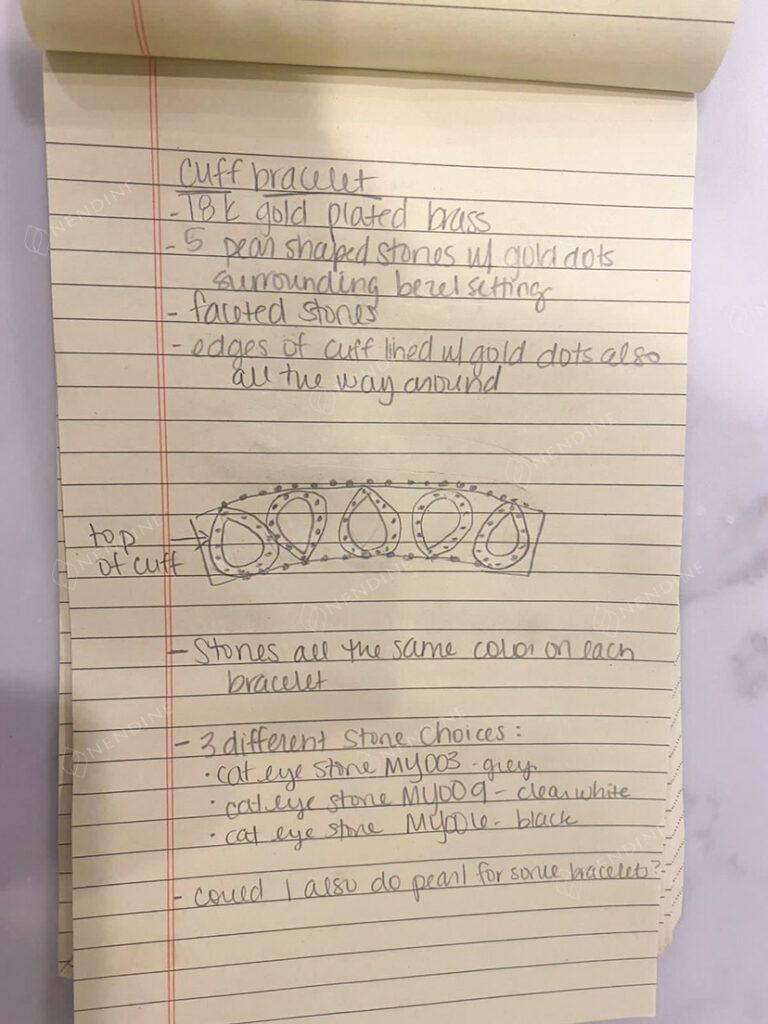 cuff bracelet
- 18k gold plated brass
- 5 pear shaped stones w/ gold dots
surrounding bezel setting
- faceted stones
- edges of cuff lined w/ gold dots also
all the way around
top
of cuff
- Stones all the same color on each
bracelet
- 3 different stone choices:
• cat eye stone MY003 - grey
• cat eye stone MY009 - clear white
• cat eye stone - black
- could I also do pearl for some bracelets?
NENDINE